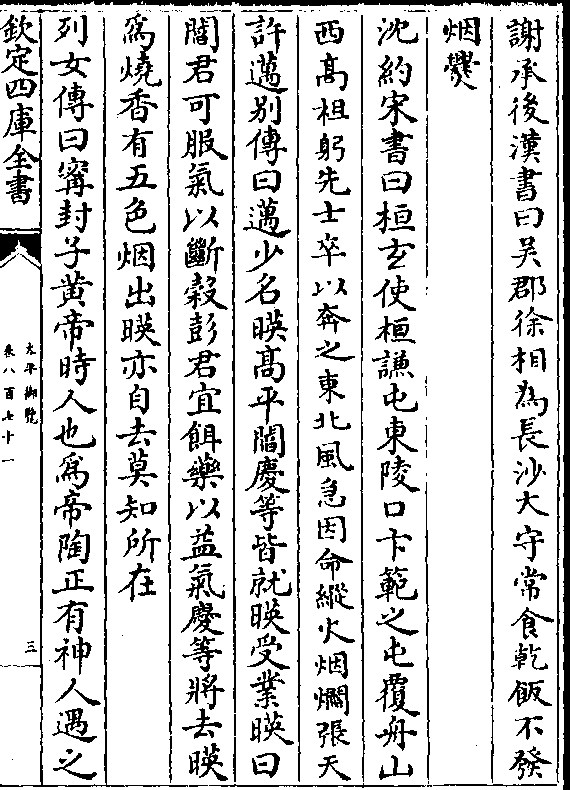 謝承後漢書曰吳郡徐相為長沙大守常食乾飯不發
烟爨
沈約宋書曰桓玄使桓謙屯東陵口卞範之屯覆舟山
西髙祖躬先士卒以奔之東北風急因命縱火烟爓張天
許邁别傳曰邁少名暎髙平閻慶等皆就暎受業暎曰
閻君可服氣以斷榖彭君宜餌藥以益氣慶等將去暎
為燒香有五色烟出暎亦自去莫知所在
列女傳曰甯封子黄帝時人也為帝陶正有神人遇之
欽定四庫全書
太平御覽
卷八百七十一
三